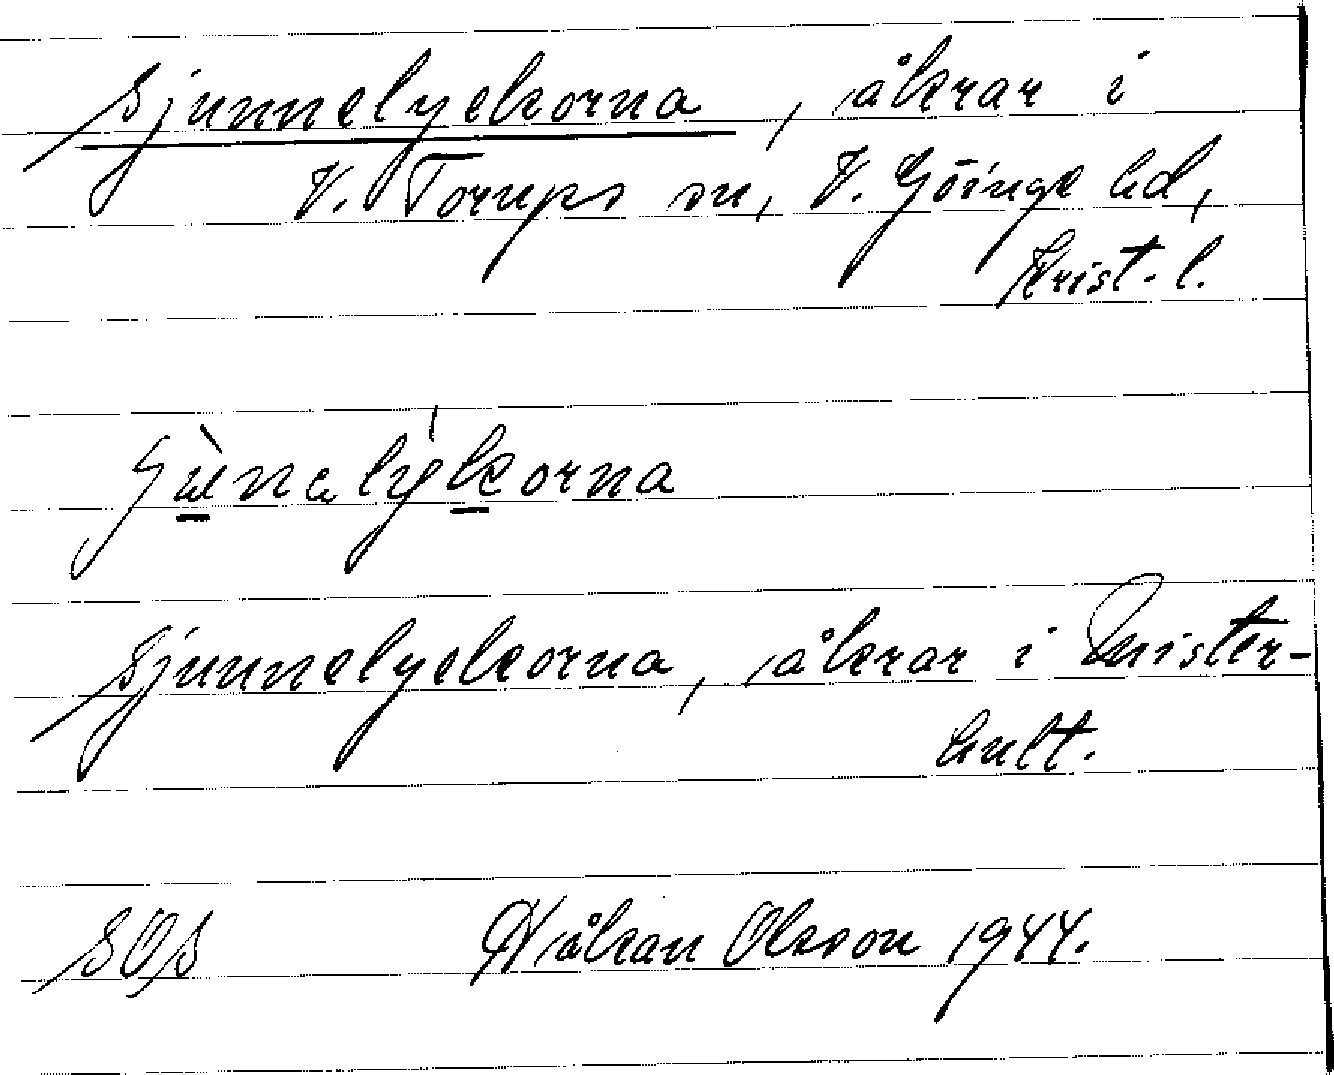 Sjunnelyckorna, åkrar i
V. Torups sn, V. Göinge hd,
Krist. l.
Sjunnelyckorna, åkrar i Mister-
hult.
SOS Håkan Olsson 1944.